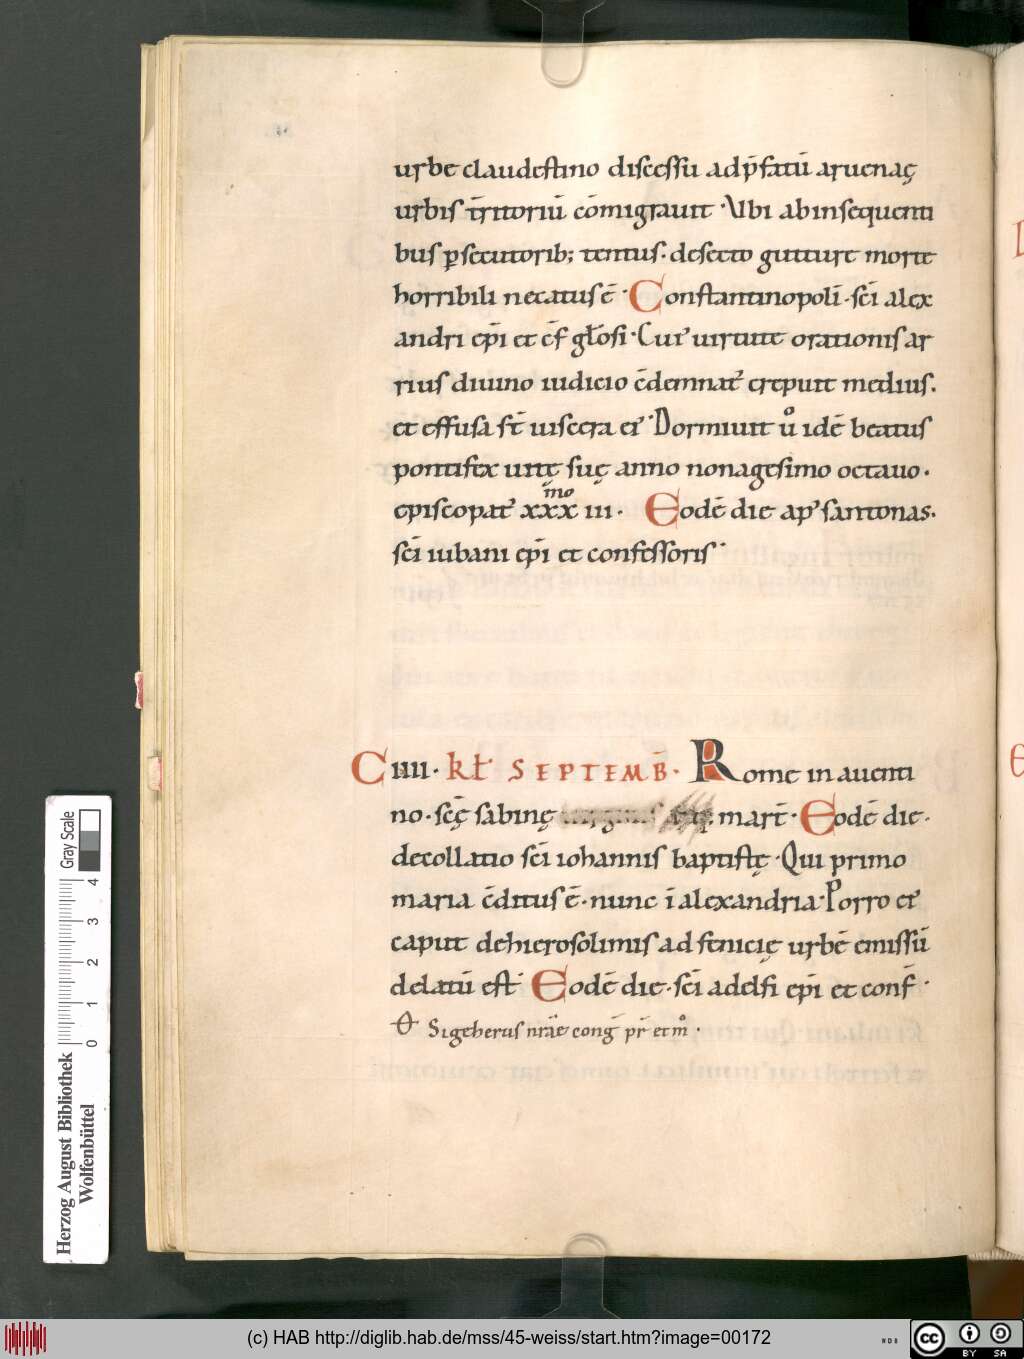 urbe claudestino discessu ad p̄fatū aruenaę
urbis t̄rritoriū cōmigrauit · Ubi ab insequenti
bus p̱secutorib; tentus · desecto gutture morte
horribili necatus ē · Constantinopoli · sc̄i alex
andri ep̄i et c̄f gl̄osi · Cuiꝰ uirtute orationis ar
rius diuino iudicio c̄demnatꝰ crepuit medius.
et effusa st̄ uiscera eiꝰ · Dormiuit ůo idē beatus
pontifex uitę suę anno nonagesimo octauo ·
episcopatꝰ xxx iii ·
mo
Eodē die apꝰ santonas.
sc̄i iubani ep̄i et confessoris ·
C IIII · kł SEPTEMB̄ · Rome in auenti
no · sc̄ę sabinę mart̄ · Eodē die ·
decollatio sc̄i iohannis baptistę · Qui primo
maria c̄ditus ē · nunc ī alexandria · Porro eiꝰ
caput de hierosolimis ad fenicię urbē emissū
delatū est · Eodē die · sc̄i adelfi ep̄i et conf̄ ·
Sigeherus nr̄ae conḡ pr̄ et m̊ ·
Herzog August Bibliothek
Wolfenbüttel
0 1 2 3 4
Gray Scale
(c) HAB http://diglib.hab.de/mss/45-weiss/start.htm?image=00172
cc BY SA